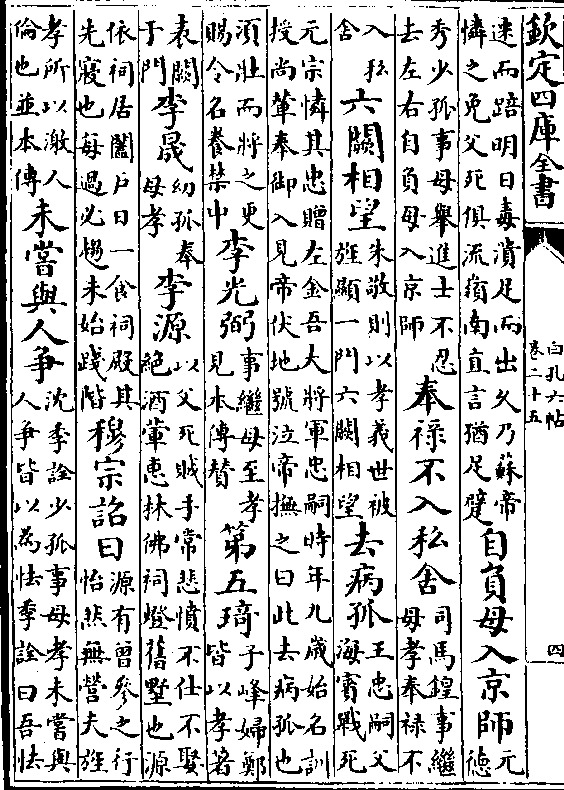 欽定四庫全書
白孔六帖
卷二十五
四
速而踣明日毒潰足而出久乃蘇帝
憐之免父死俱流嶺南直言猶足躄
自負母入京師
元
德
秀少孤事母舉進士不忍
去左右自負母入京師
奉禄不入私舍
司馬鍠事繼
母孝奉禄不
入私
舍
六闕相望
朱敬則以孝義世被
旌顯一門六闕相望
去病孤
王忠嗣父
海賓戰死
元宗憐其忠贈左金吾大將軍忠嗣時年九歲始名訓
授尚輦奉御入見帝伏地號泣帝撫之曰此去病孤也
須壯而將之更
賜令名養禁中
李光弼
事繼母至孝
見本傳贊
第五琦
子峰婦鄭
皆以孝著
表闕
于門
李晟
幼孤奉
母孝
李源
以父死賊手常悲憤不仕不娶
絶酒葷惠林佛祠燈舊墅也源
依祠居闔户日一食祠殿其
先寢也每過必趨未始踐階
穆宗詔曰
源有曾參之行
怡然無營夫旌
孝所以激人
倫也並本傳
未嘗與人爭
沈季詮少孤事母孝未嘗與
人爭皆以為怯季詮曰吾怯